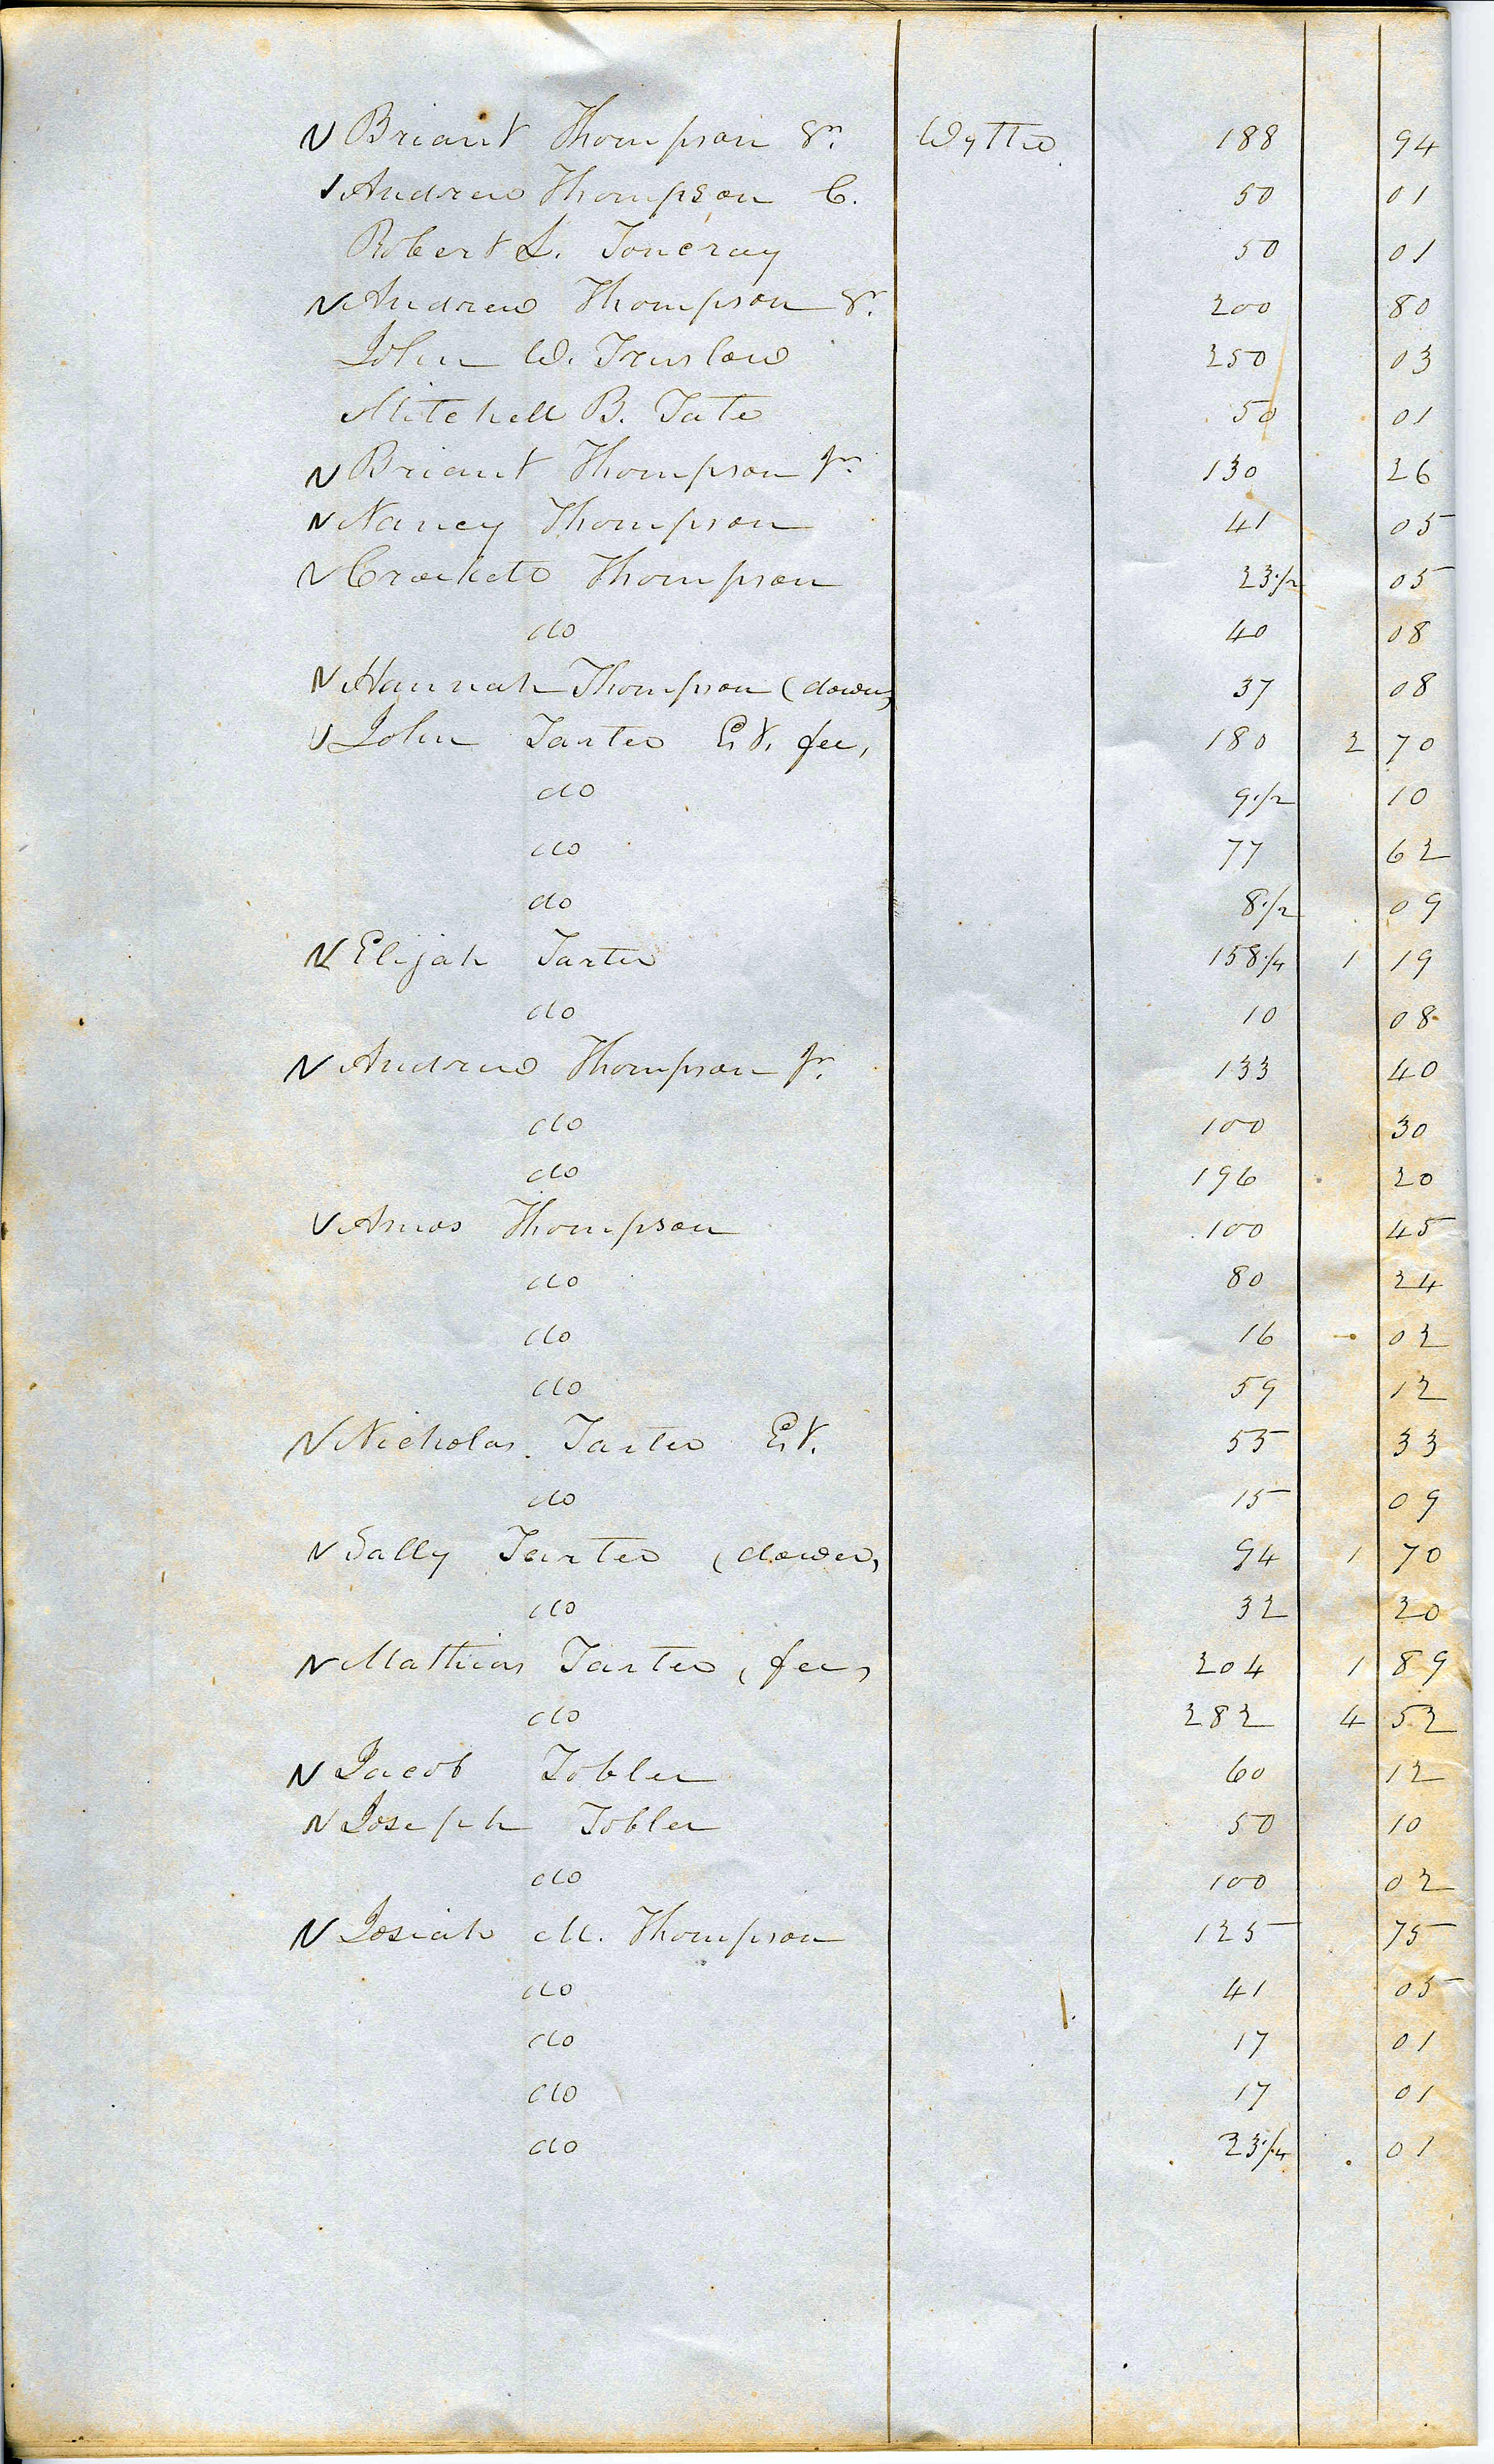 √ Briant Thompson Sr. Wythe 188 94
√ Andrew Thompson C. 50 01
Robert L. Toncray 50 01
√ Andrew Thompson Sr. 200 80
John W. Truslow 250 03
Mitchell B. Tate 50 01
√ Briant Thompson Jr. 130 26
√ Nancy Thompson 41 05
√ Crockett Thompson 23 1/2 05
do 40 08
√ Hannah Thompson (dower) 37 08
√ John Tarter Est. fee, 180 2 70
do 9 1/2 10
do 77 62
do 8 1/2 09
√ Elijah Tarter 158 1/4 1 19
do 10 08
√ Andrew Thompson Jr. 133 40
do 100 30
do 196 20
√ Amos Thompson 100 45
do 80 24
do 16 02
do 59 12
√ Nicholas Tarter Est. 55 33
do 15 09
√ Sally Tarter (dower) 94 1 70
do 32 20
√ Mathias Tarter (fee) 204 1 89
do 282 4 52
√ Jacob Tobler 60 12
√ Joseph Tobler 50 10
do 100 02
√ Josiah M. Thompson 125 75
do 41 05
do 17 01
do 17 01
do 23 1/4 01